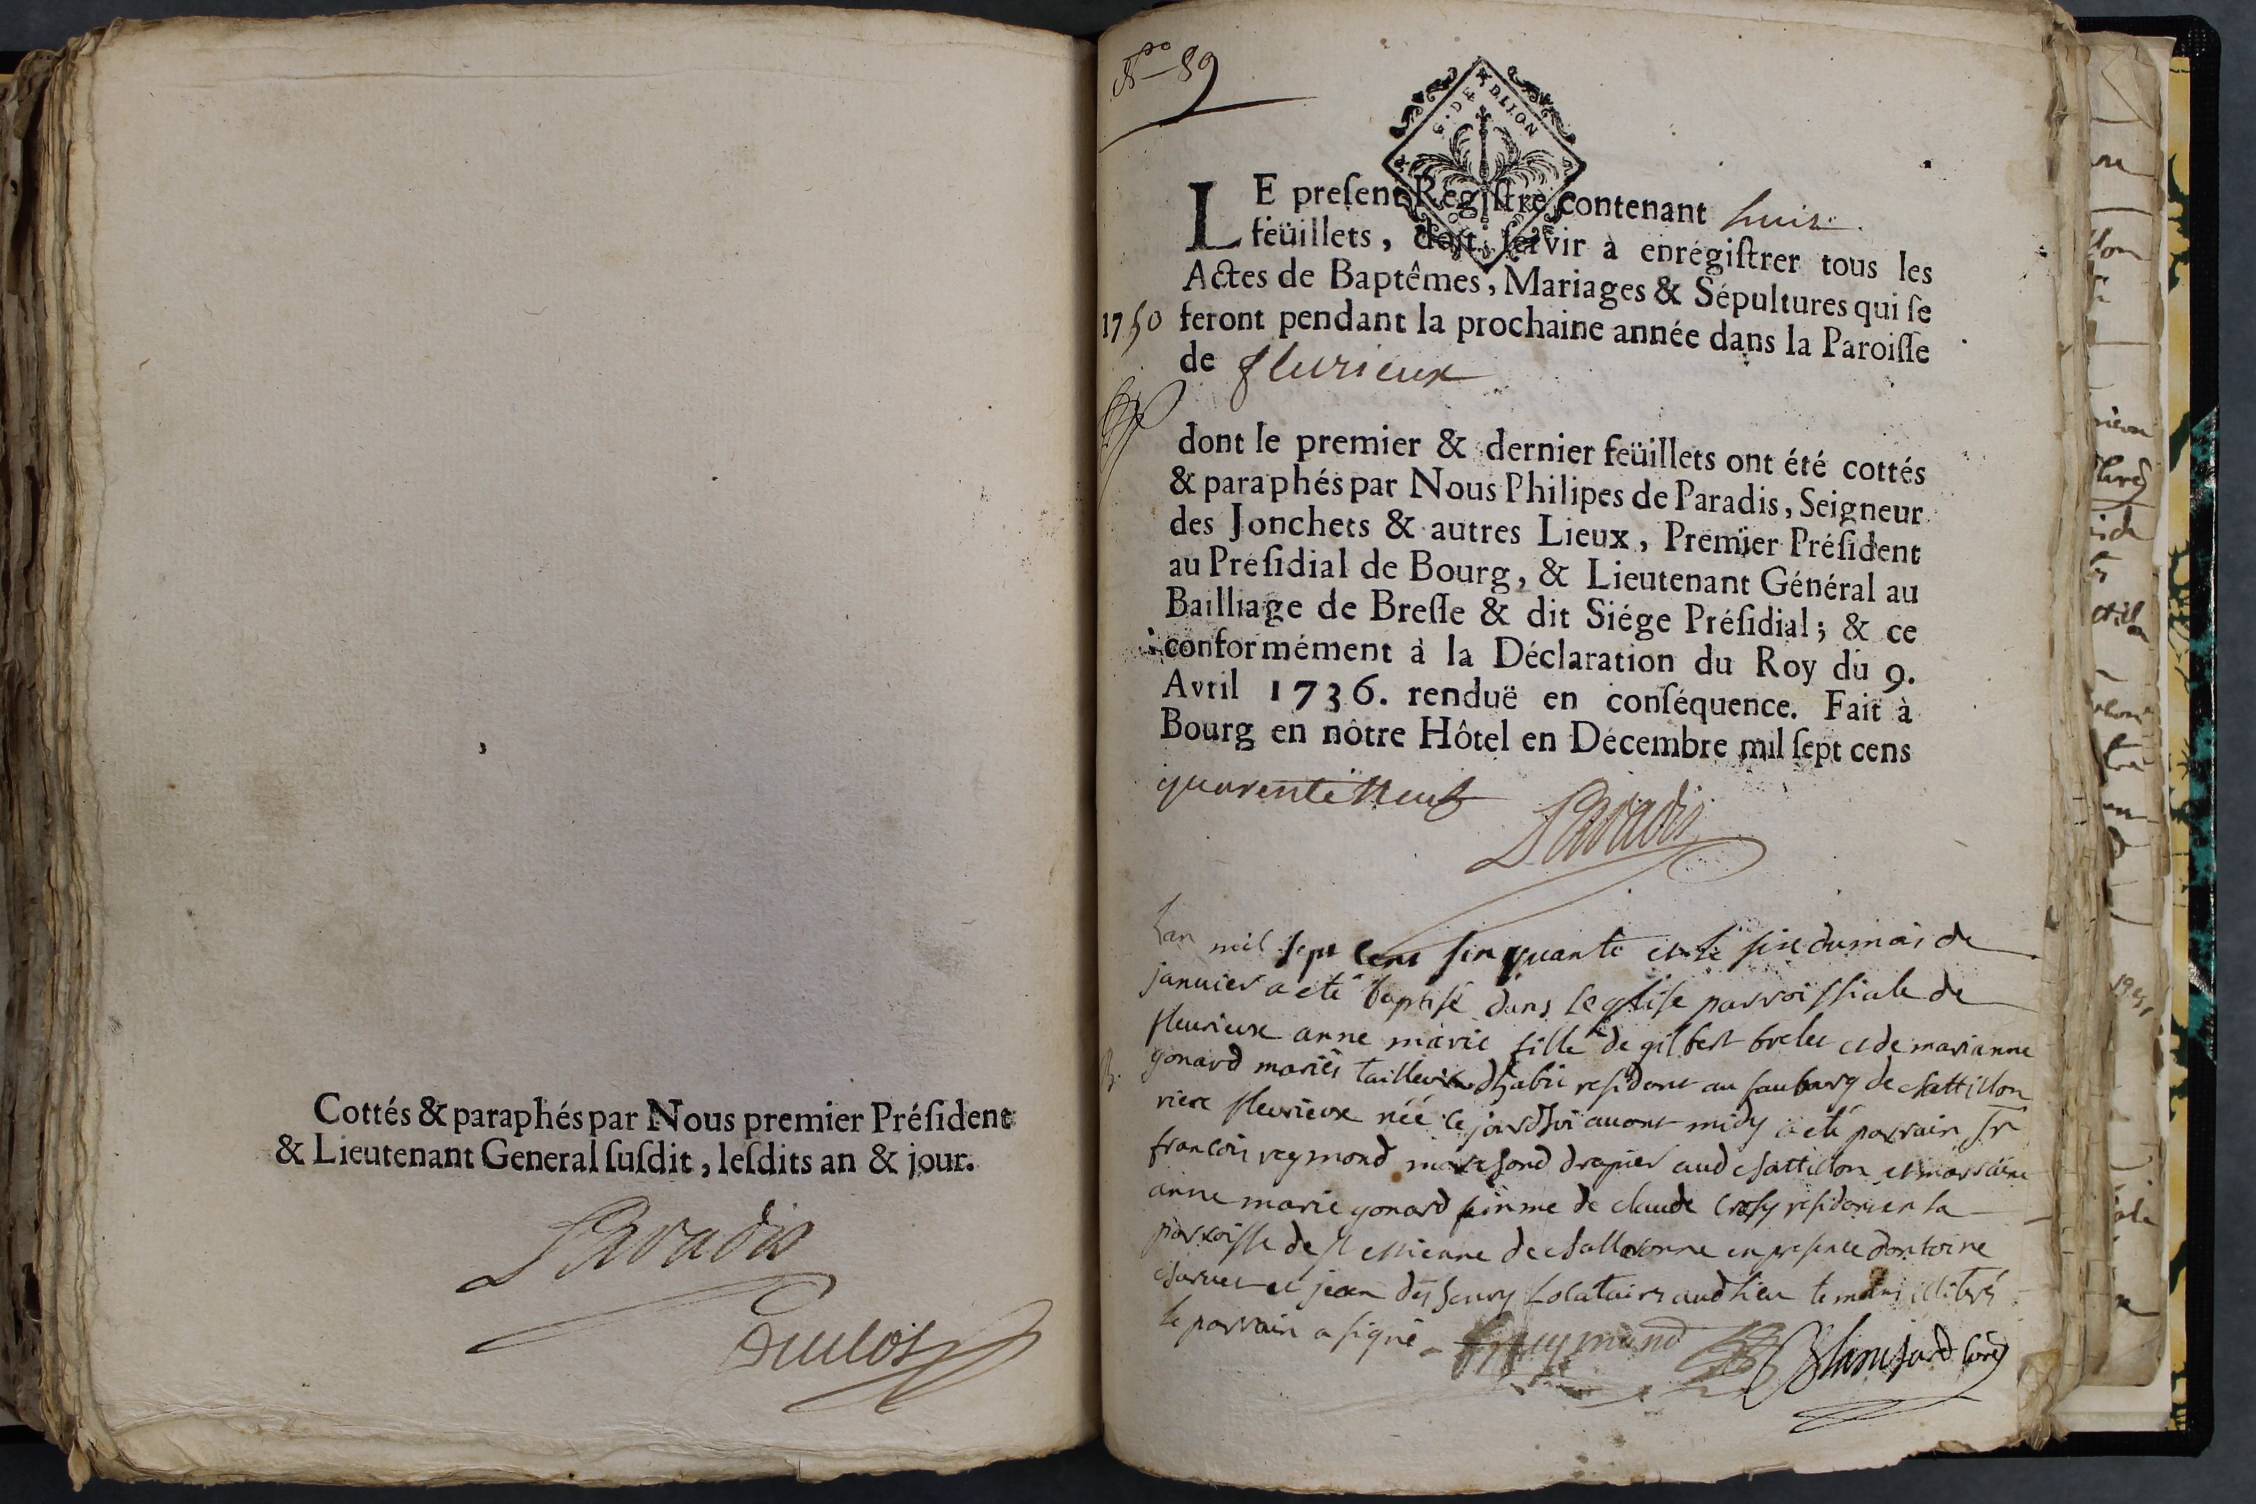 Cottés & paraphés par Nous premier Préſident
& Lieutenant General ſuſdit, leſdits an & jour.
Paradis
Duclos
No 89
G. DE DIJON
LE preſent Regiſtre contenant huit
feüillets, doit ſervir à enrégiſtrer tous les
Actes de Baptêmes, Mariages & Sépultures qui ſe
1750 feront pendant la prochaine année dans la Paroiſſe
de fleurieux
dont le premier & dernier feüillets ont été cottés
& paraphés par Nous Philipes de Paradis, Seigneur
des Jonchets & autres Lieux, Premier Préſident
au Préſidial de Bourg, & Lieutenant Général au
Bailliage de Breſſe & dit Siége Préſidial; & ce
conformément à la Déclaration du Roy du 9.
Avril 1736. renduë en conſéquence. Fait à
Bourg en nôtre Hôtel en Décembre mil ſept cens
quarente Neuf
Paradis
Lan mil sept cent sinquante et le six du mois de
janvier a eté baptisé dans leglise parroissiale de
B.
fleurieux anne marie fille de gilbert brelet et de marianne
gonard mariés tailleur dhabit resident au faubourg de chattillon
riere fleurieux née ce jourdhui avant midy a eté parrain sr
francois reymond marchand drapier aud chattillon et marraine
anne marie gonard femme de claude residant en la
parroisse de st estienne de challaronne en presence dantoine
et jean locataires aud lieu temoins illiterés
le parrain a signé freymond Blanchard curé